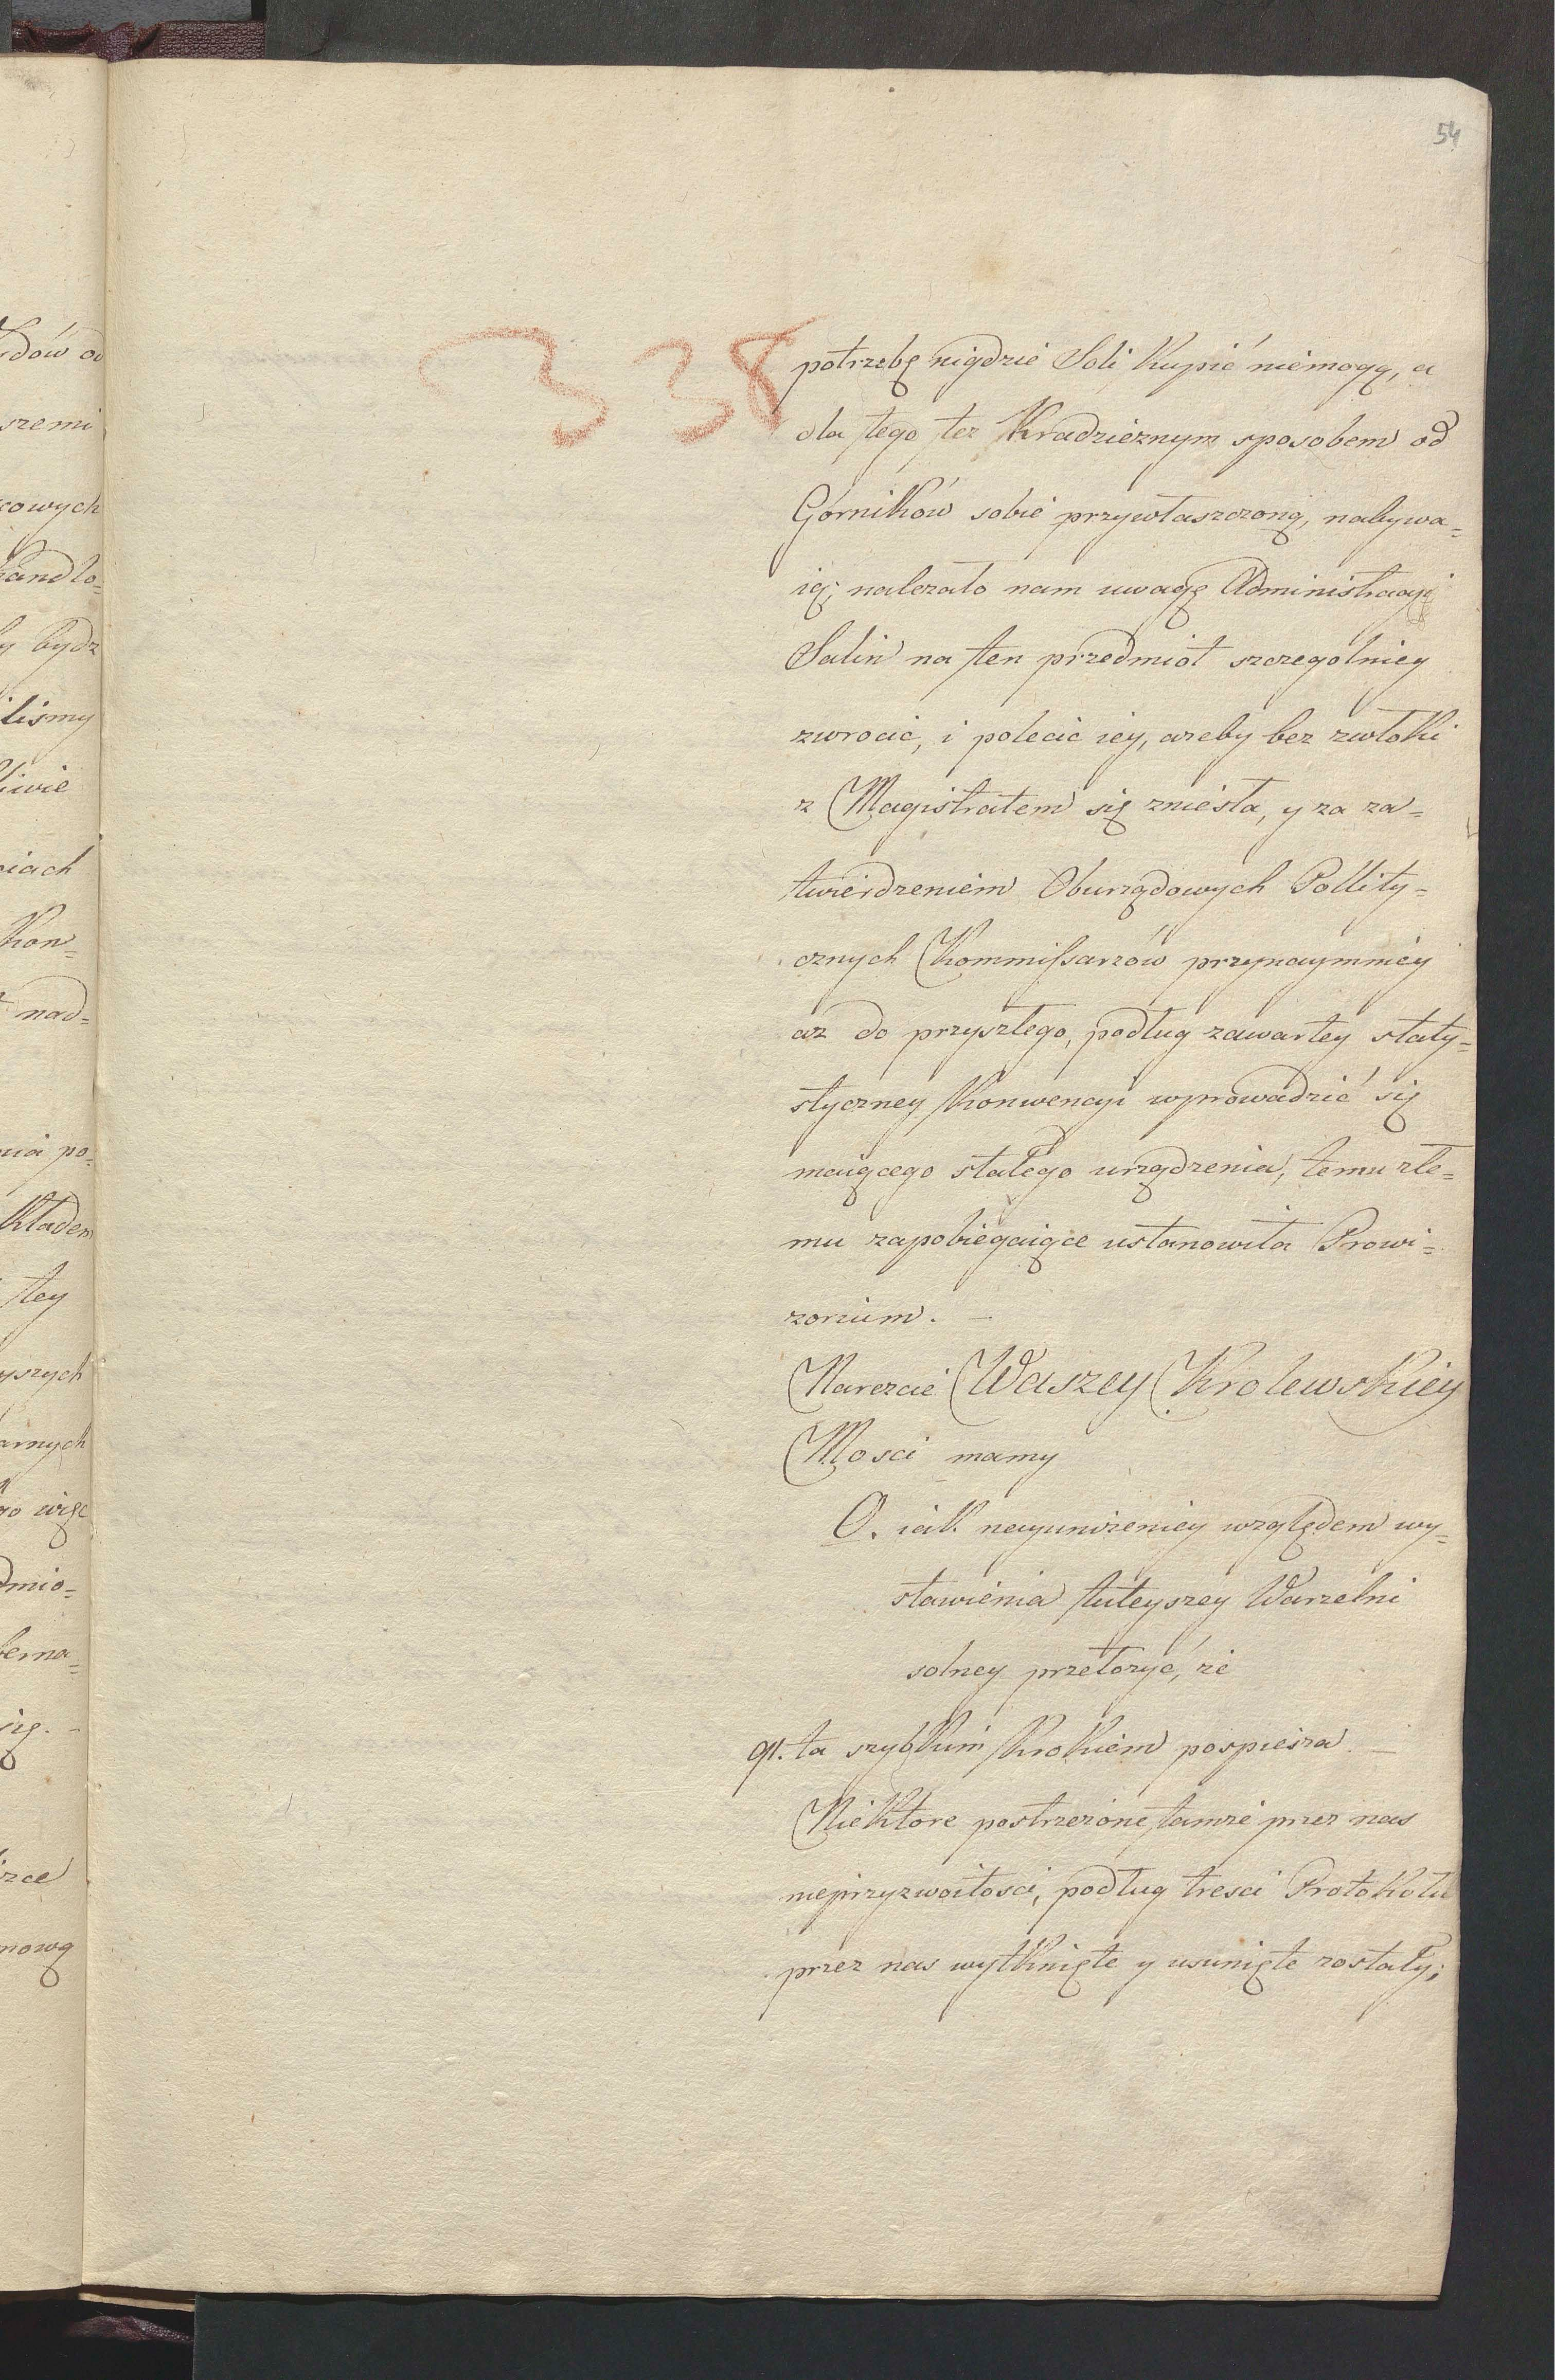 54
338
potrzebę nigdzie Soli Kupić niemogą, a
dla tego tez Kradzieznym sposobem od
Gorników sobie przywłaszczoną, nabywa=
ią; nalezało nam uwagę Administracyi
Salin na ten przedmiot szczegolniey
zwrocic, i polecic iey, azeby bez zwłoki
z Magistratem się zniesła, y za za=
twierdzeniem Oburzędowych Pollity=
cznych Kommissarzów przynaymniey
az do przyszłego, podług zawartey staty=
styczney Konwencyi wprowadzić się
maiącego stałego urządzenia, temu złe=
mu zapobiegaiące ustanowiła Prowi=
zorium. —
Narezcie Waszey Krolewskiey
Mosci mamy
O. iak nayunizeniey względem wy=
stawienia tuteyszey Warzelni
solney przełozyć, ze
91. ta szybkim Krokiem pospiesza —
Niektore postrzezone tamze przez nas
nieprzyzwoitosci, podług tresci Protokołu
przez nas wytknięte y usunięte zostały;
dów od
szemi
cowych
handlo=
y bydz
lismy
iwie
iach
Kon=
nad=
nia po=
kładem
tey
yszych
arnych
go więc
dmio=
berna=
rzce
nową